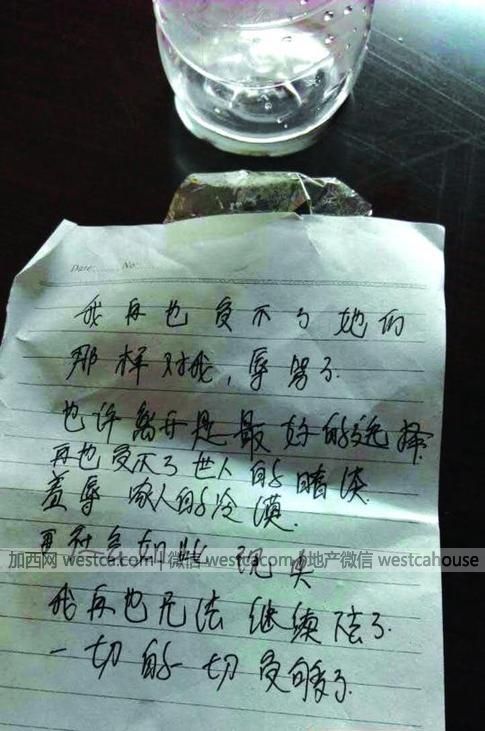 Date: No
我再也受不了她的
那样对我,辱骂了.
也许离开是最好的选择
再也受不了世人的
羞辱 家人的冷漠.
加西网 westca.com | 微信 westcacom | 地产微信 westcahouse
现实
我再也无法继续陪了.
一切的一切受够了.